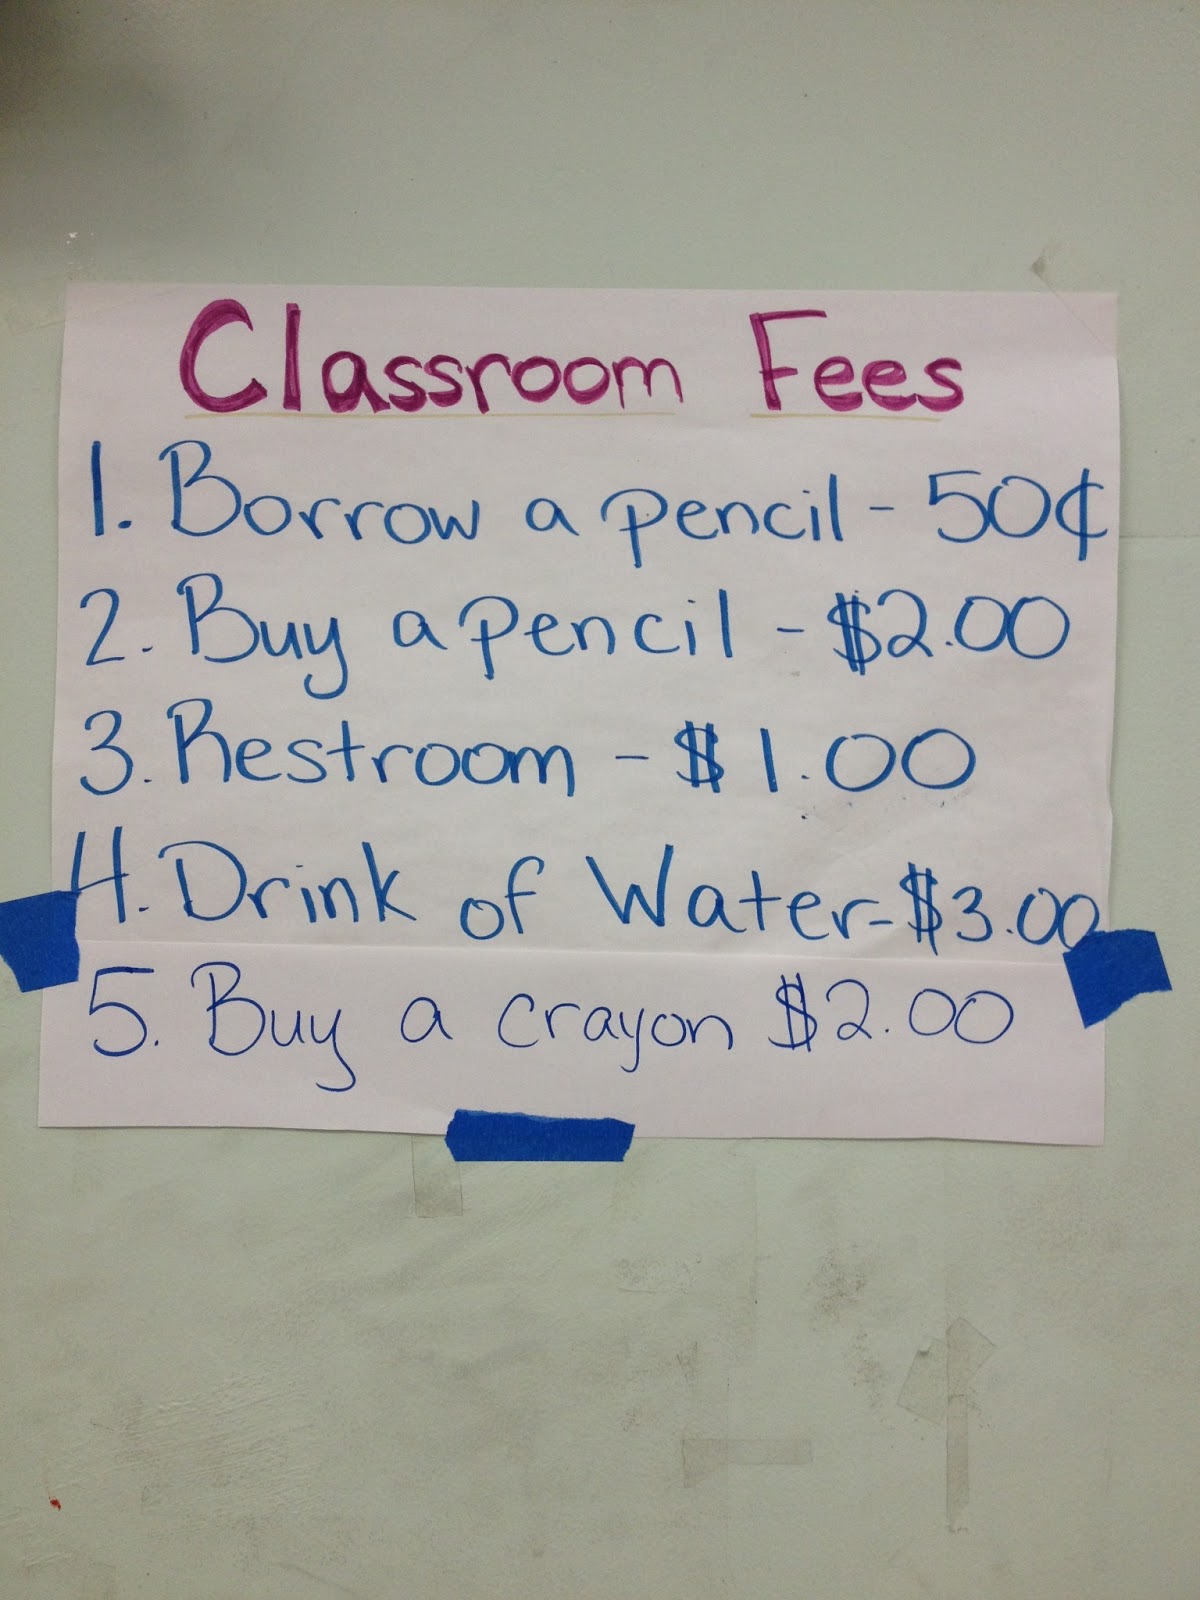 Classroom Fees
1. Borrow a pencil - 50¢
2. Buy a pencil - $2.00
3. Restroom - $1.00
4. Drink of Water - $3.00
5. Buy a crayon $2.00